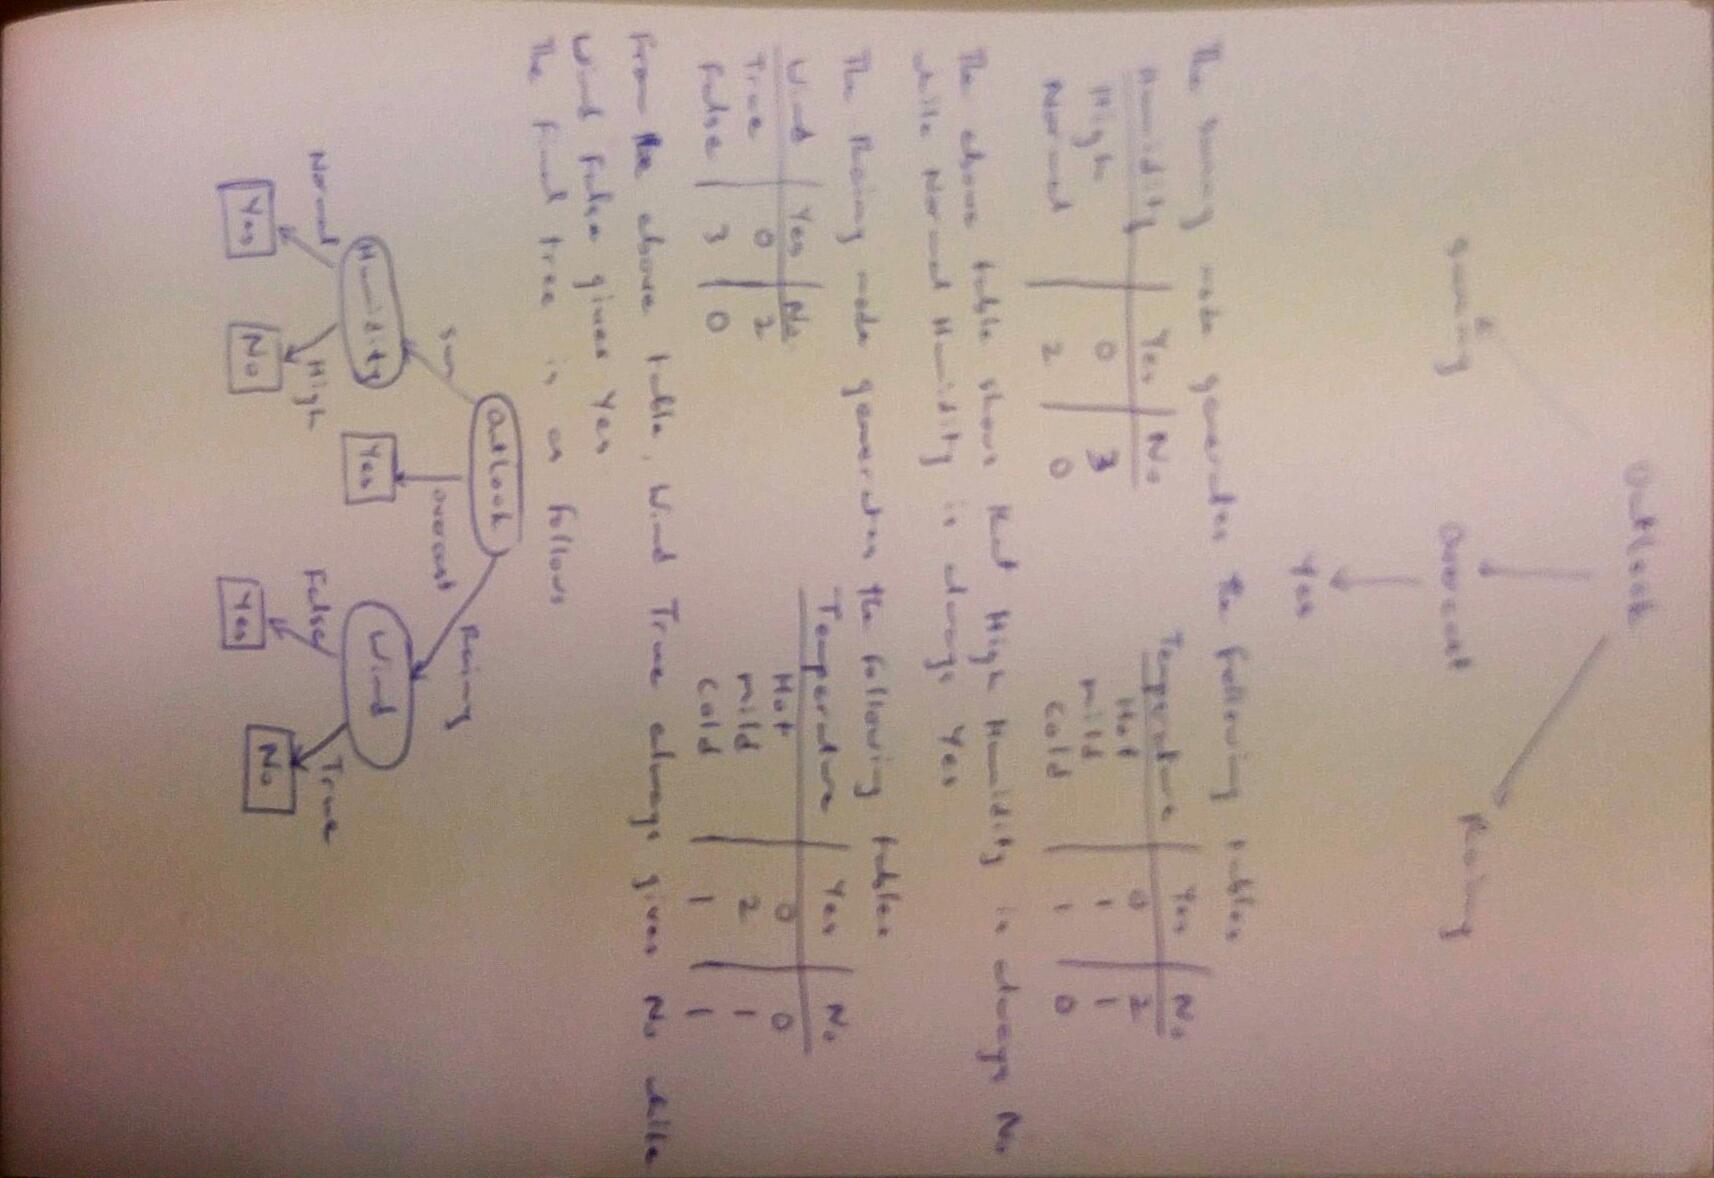 Outlook
Sunny Overcast Rainy
Yes
The Sunny node generates the following tables
Humidity Yes No
High 0 3
Normal 2 0
Temperature Yes No
Hot 0 2
Mild 1 1
Cold 1 0
The above table shows that High Humidity is always No
while Normal Humidity is always Yes
The Rainy node generates the following tables
Wind Yes No
True 0 2
False 3 0
Temperature Yes No
Hot 0 0
Mild 2 1
Cold 1 1
From the above table, Wind True always gives No while
Wind False gives Yes
The final tree is as follows
Outlook
Sun overcast Rainy
Humidity Yes Wind
Normal High False True
Yes No Yes No